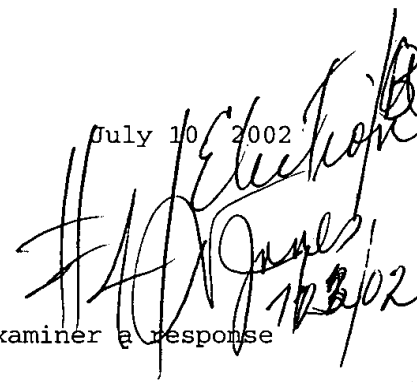 July 10, 2002
#4/Election
Jones,
7/23/02
xaminer a response